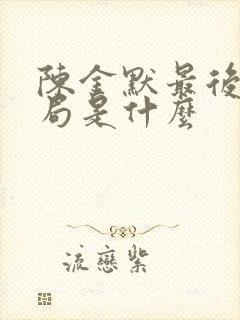 陳金默最後
局是什麼
流戀紫